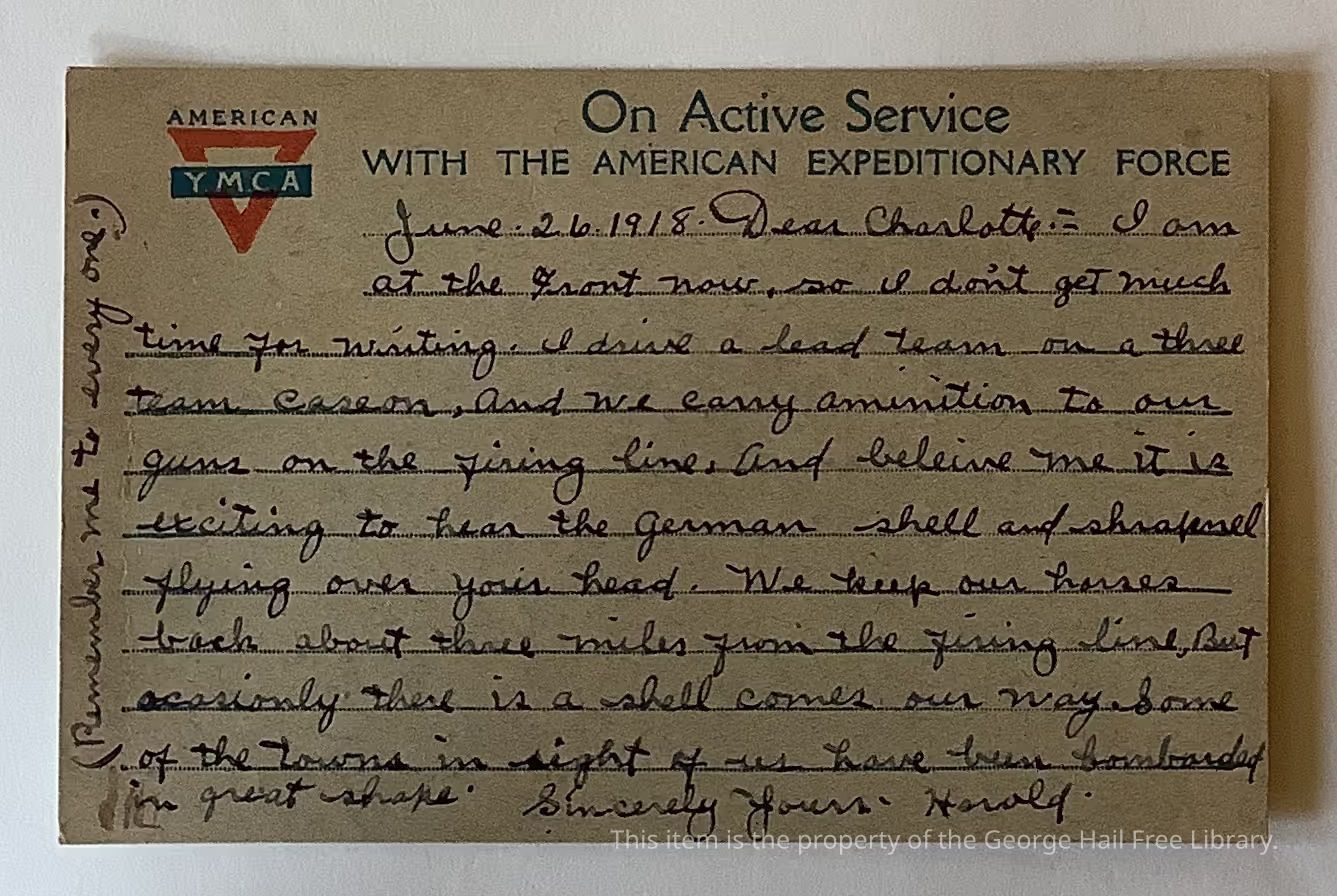 AMERICAN
YMCA
On Active Service
WITH THE AMERICAN EXPEDITIONARY FORCE
June. 26. 1918. Dear Charlotte:= I am
at the Front now, so I don't get much
time for writing. I drive a lead team on a three
team caseon, And we carry aminition to our
guns on the firing line, And beleive me it is
exciting to hear the German shell and shrapnel
flying over your head. We keep our horses
back about three miles from the firing line, But
ocasionly there is a shell comes our way. Some
of the towns in sight of us have been bombarded
in great shape. Sincerely Yours. Harold.
(Remember me to every one.)
This item is the property of the George Hail Free Library.